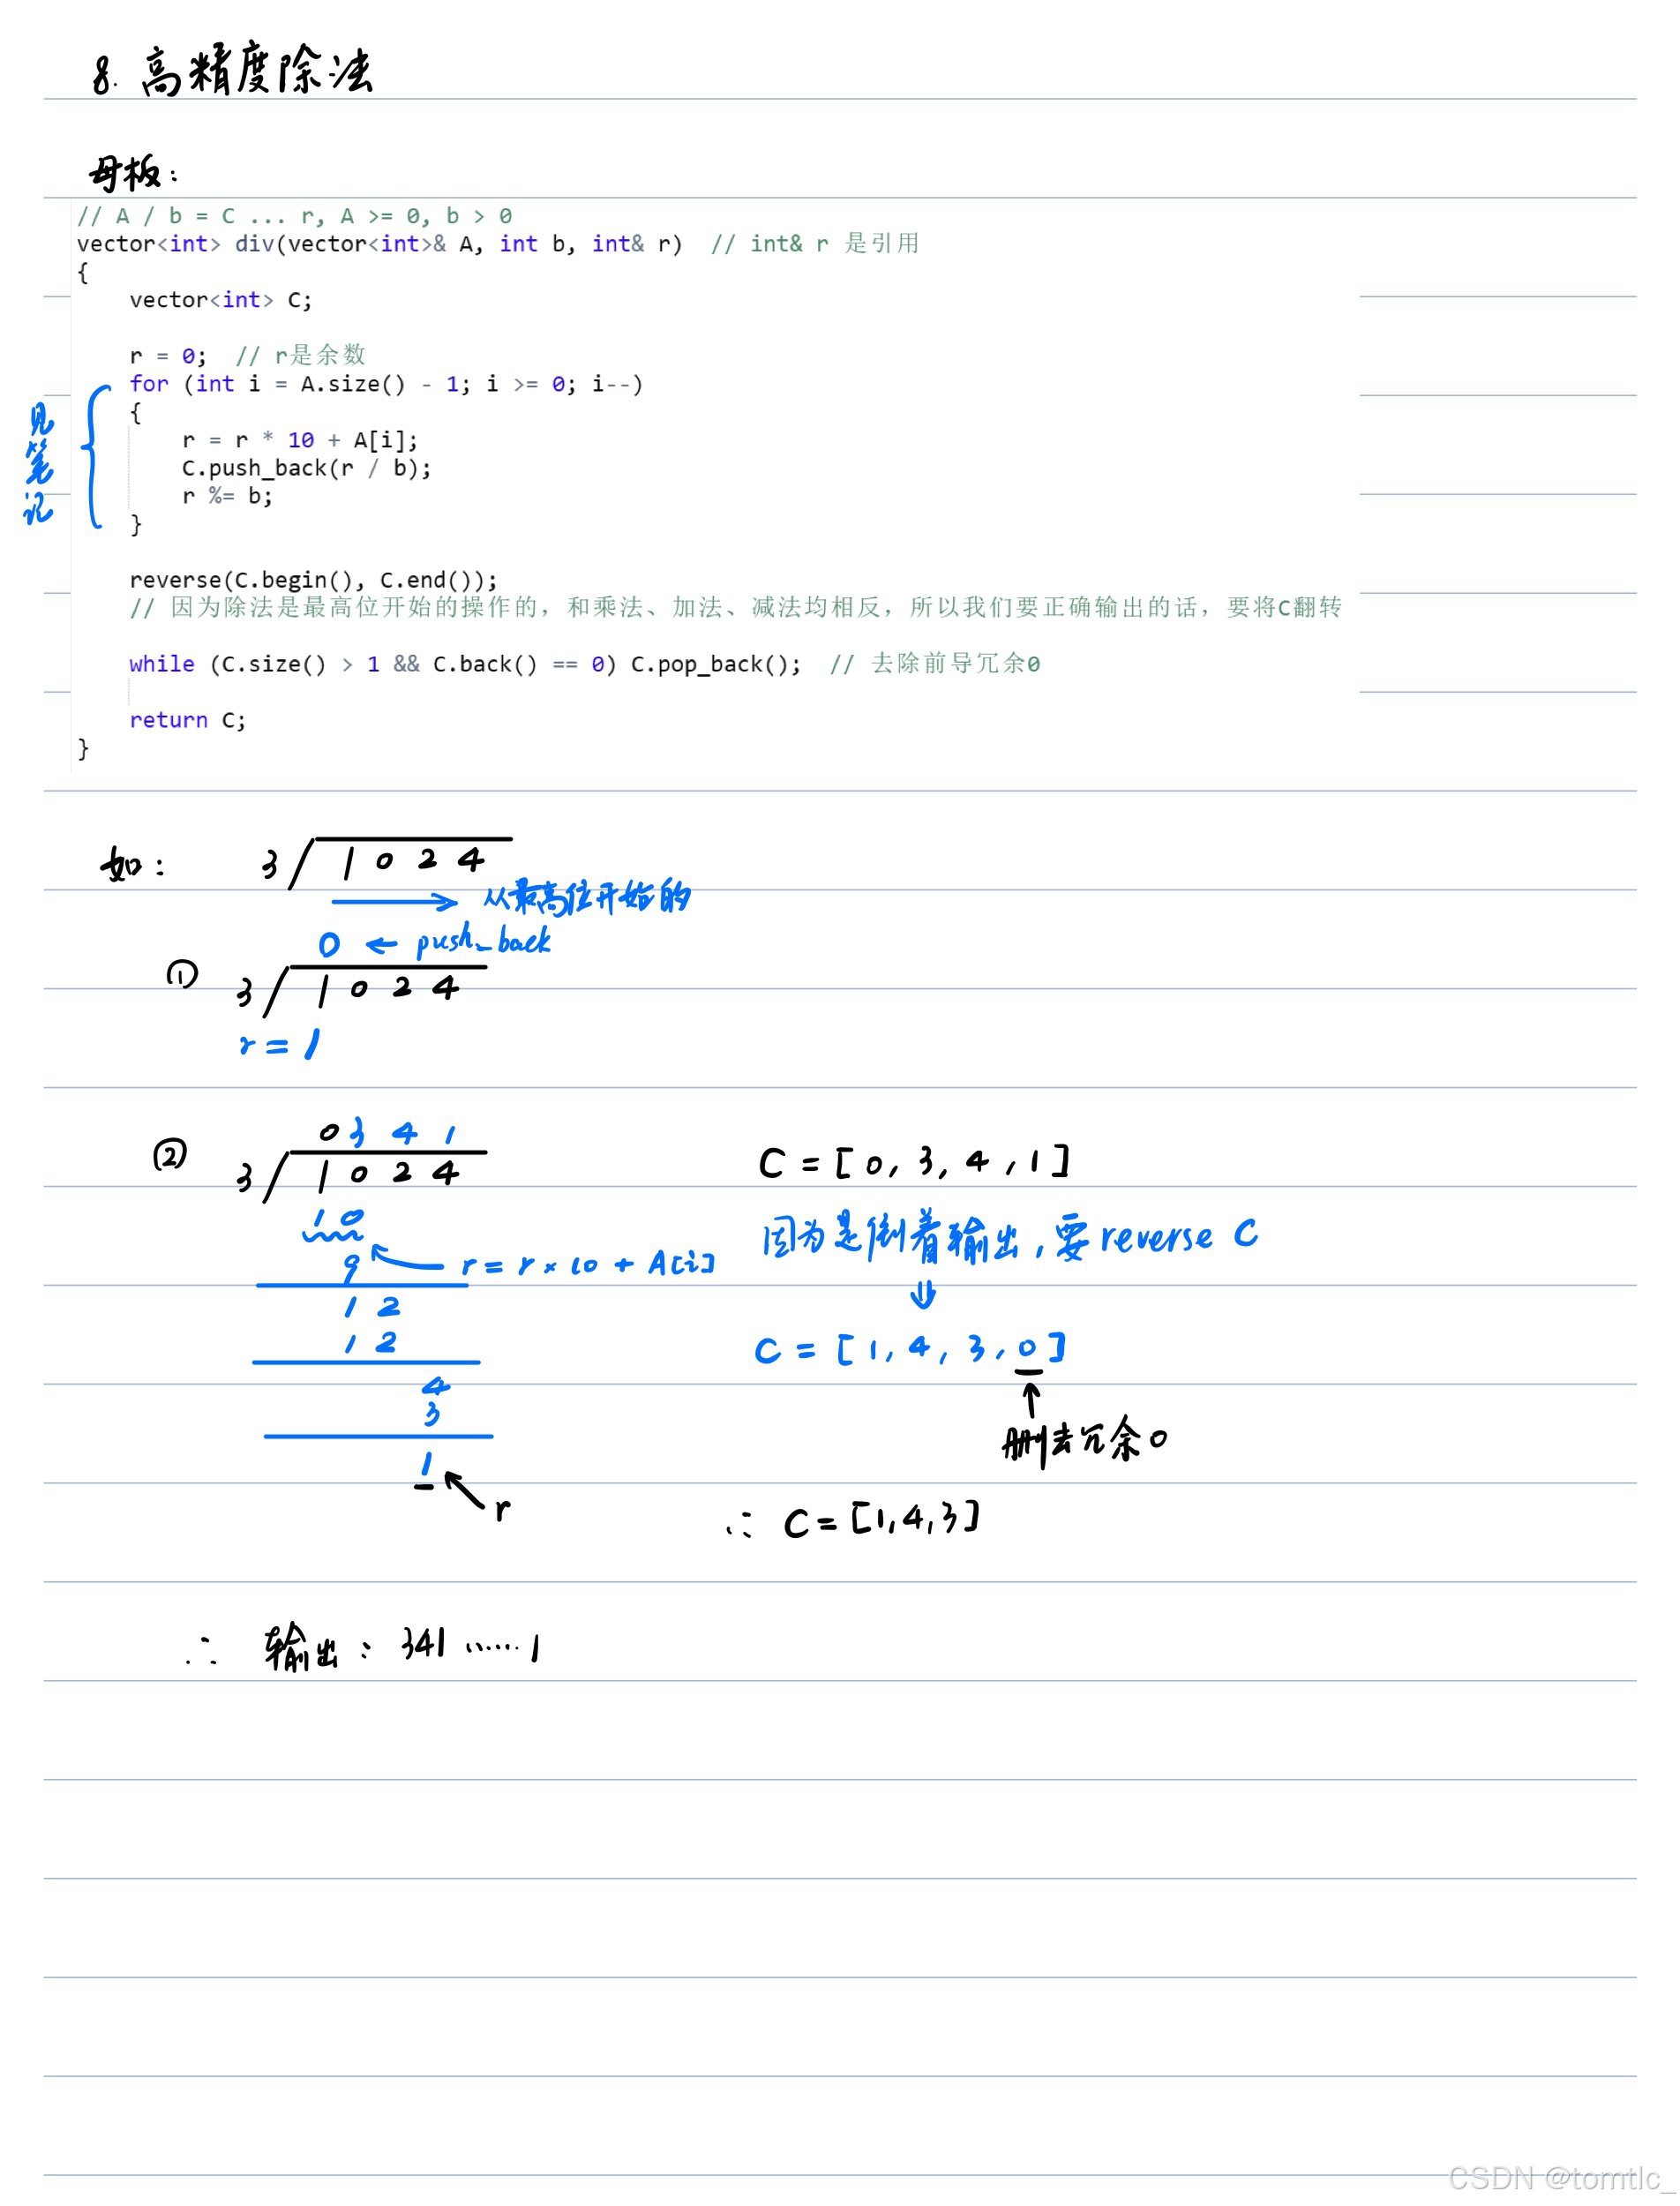 8. 高精度除法
母板：
// A / b = C ... r, A >= 0, b > 0
vector<int> div(vector<int>& A, int b, int& r)  // int& r 是引用
{
    vector<int> C;
    r = 0;  // r是余数
    for (int i = A.size() - 1; i >= 0; i--)
    {
        r = r * 10 + A[i];
        C.push_back(r / b);
        r %= b;
    }
见笔记
    reverse(C.begin(), C.end());
    // 因为除法是最高位开始的操作的，和乘法、加法、减法均相反，所以我们要正确输出的话，要将C翻转
    while (C.size() > 1 && C.back() == 0) C.pop_back();  // 去除前导冗余0
    return C;
}
如： 3 1 0 2 4
从最高位开始的
0 ← push_back
① 3 1 0 2 4
r = 1
0 3 4 1
② 3 1 0 2 4
1 0
9 r = r × 10 + A[i]
1 2
1 2
4
3
1 r
C = [0, 3, 4, 1]
因为是倒着输出, 要 reverse C
⇓
C = [1, 4, 3, 0]
↑
删去冗余0
∴ C = [1, 4, 3]
∴ 输出：341 ⋯⋯ 1
CSDN @tomtlc_